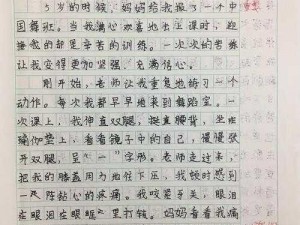 5岁的时候，妈妈给我报了一个中
国舞班。当我满心欢喜地去上课时，迎
接我的却是辛苦的训练。一次次的苦练
让我变得更加坚强、充满信心。
刚开始，老师让我重复地练习一个
动作。每次我都早早地来到舞蹈室。一
次课上，我伸直双腿，挺直腰背，坐在
瑜伽垫上，看着镜子中的自己，慢慢张
开双腿，呈“一”字形。老师走过来，
把我的膝盖用力地往下压，我顿时感到
一阵钻心的疼痛。我咬着牙关，眼泪
在眼眶里打转。妈妈看着我痛